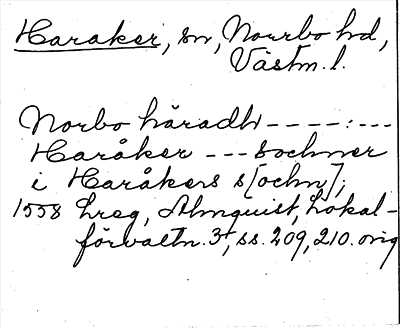 Haraker, sn, Norrbo hd,
Västm. l.
Norbo häradh ----:---
Haråker --- sochner
i Haråkers s[ochn];
1558 Lreg, Almquist, Lokal-
förvaltn. 3, ss. 209, 210. orig